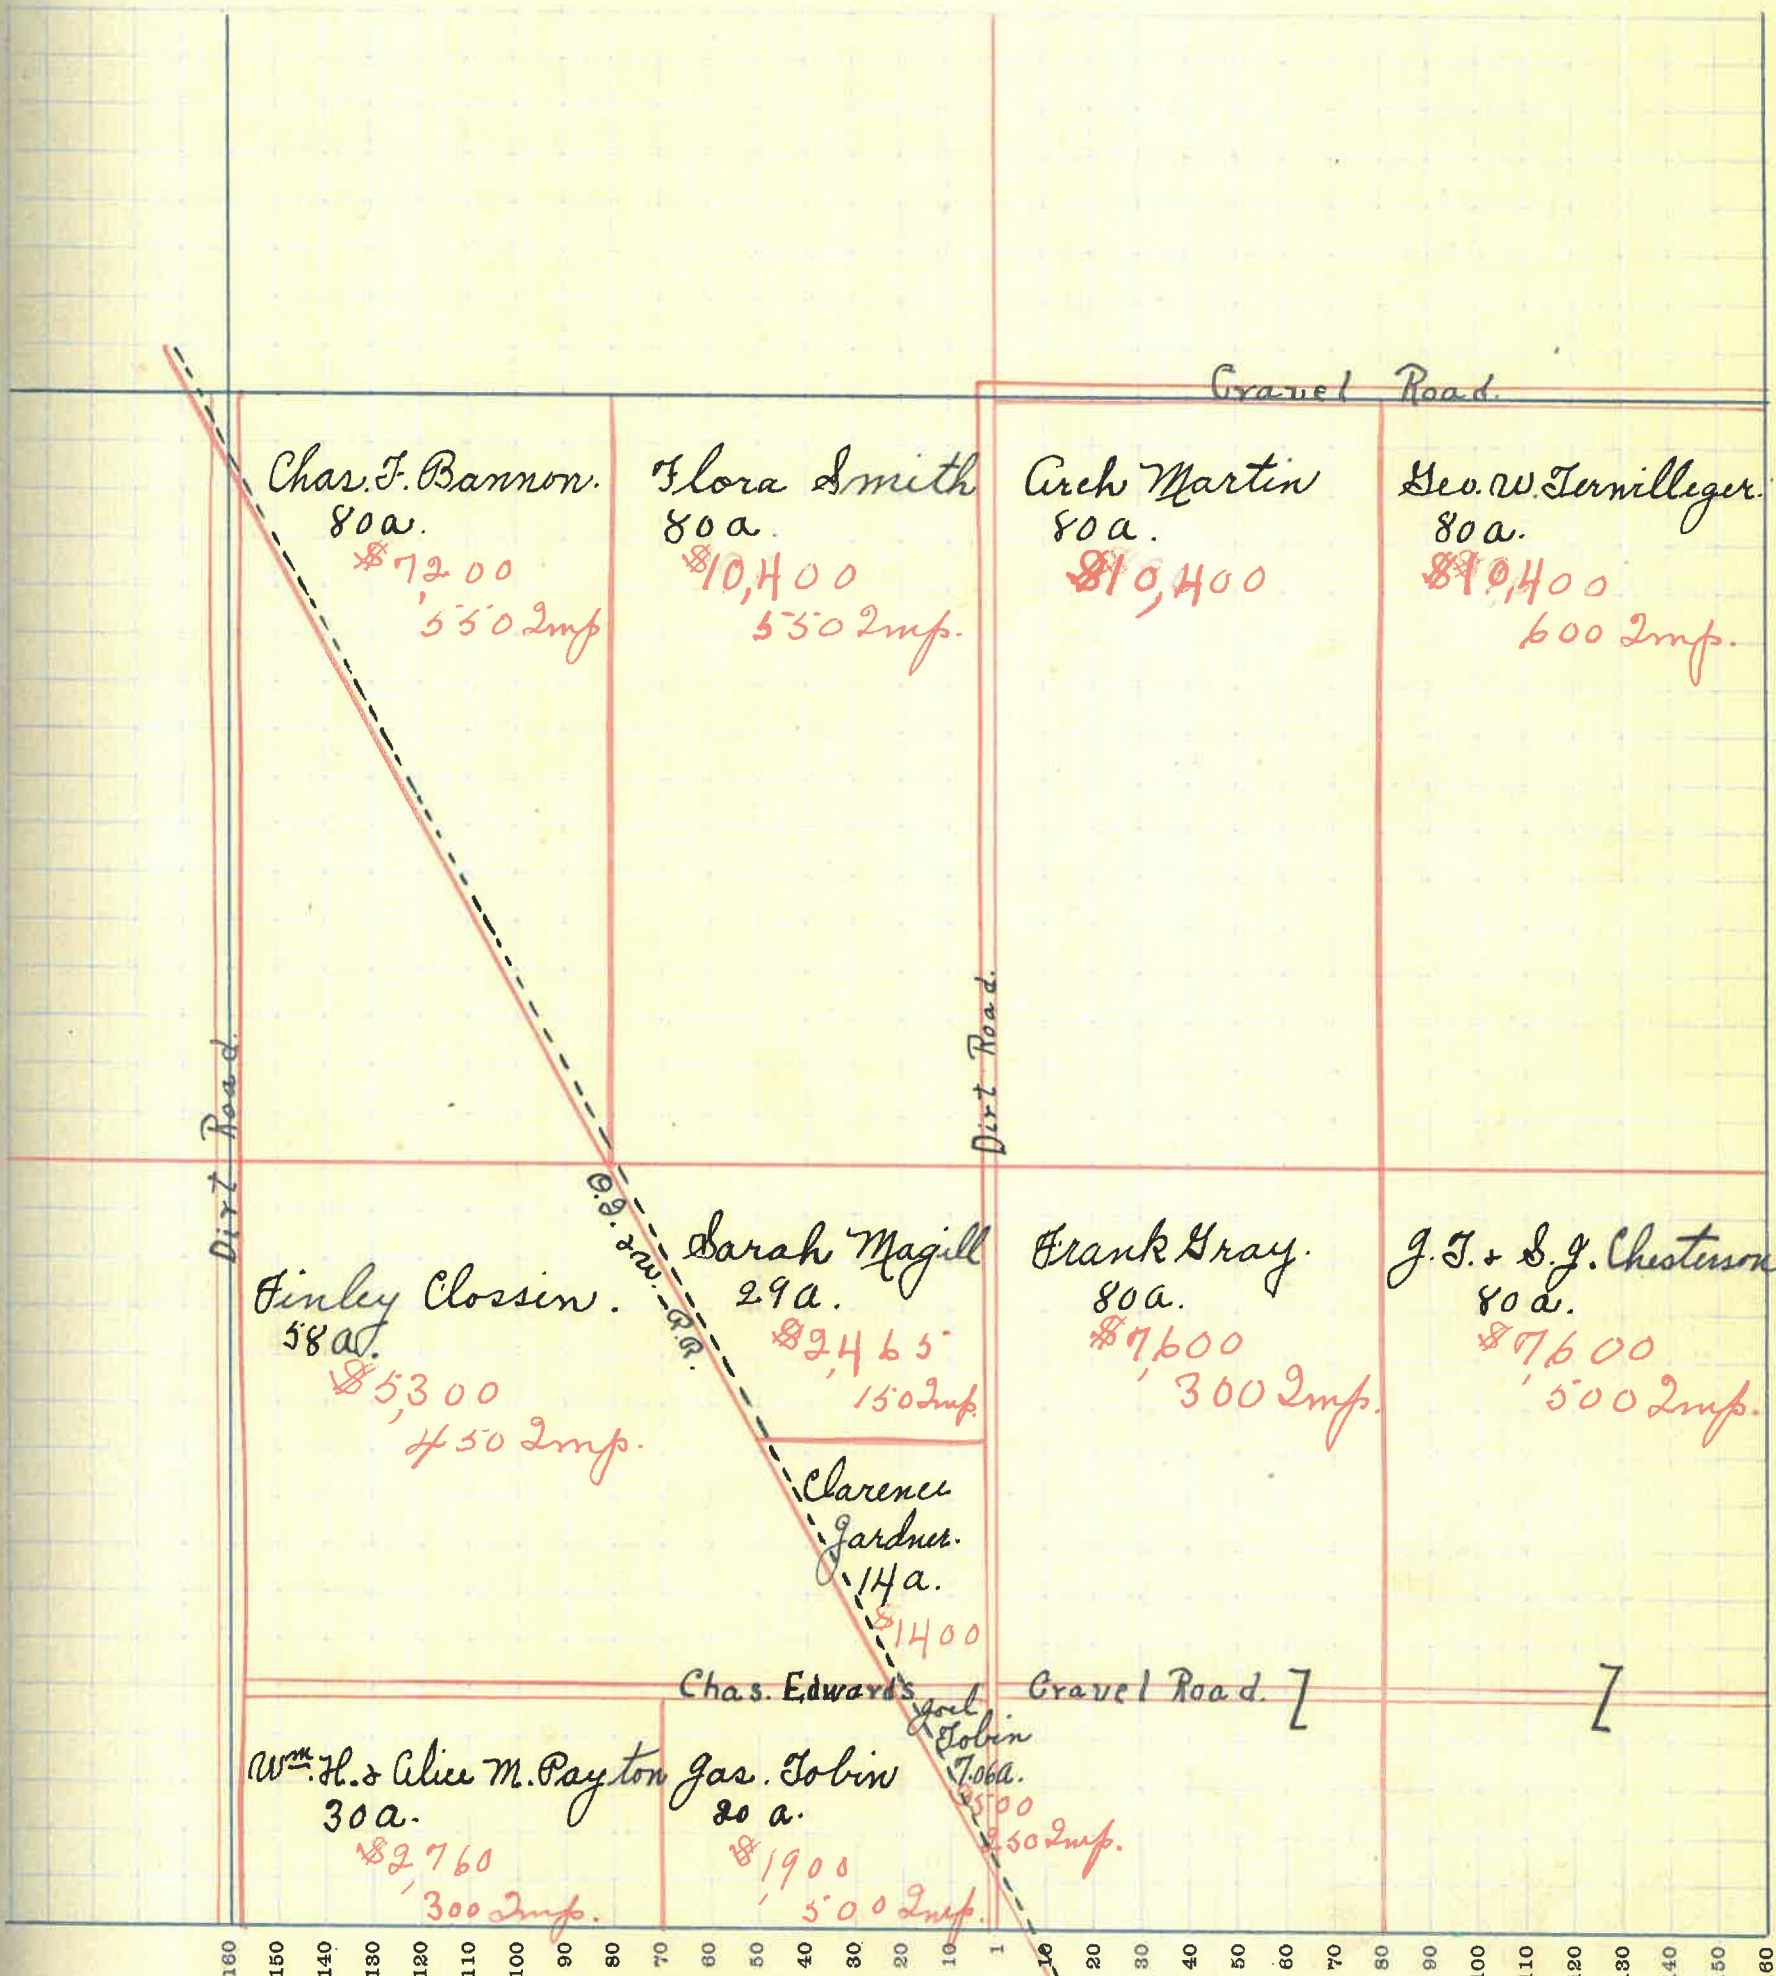 Gravel Road.
Chas. F. Bannon.
80a.
$7,200
550 Imp
Flora Smith
80a.
$10,400
550 Imp.
Arch Martin
80a.
$10,400
Geo. W. Terwilleger.
80a.
$10,400
600 Imp.
Dirt Road.
Dirt Road.
O.I. & W. R.R.
Finley Clossin.
58a.
$5,300
450 Imp.
Sarah Magill
29a.
$2,465
150 Imp.
Frank Gray.
80a.
$7,600
300 Imp.
J.T. & S.J. Chesterson
80a.
$7,600
500 Imp.
Clarence
Gardner.
14a.
$1400
Chas. Edwards Gravel Road.
Wm. H. & Alice M. Payton
30a.
$2,760
300 Imp.
Jas. Tobin
20 a.
$1,900
500 Imp.
Joel
Tobin
7.06a.
$500
250 Imp.
160 150 140 130 120 110 100 90 80 70 60 50 40 30 20 10 1 10 20 30 40 50 60 70 80 90 100 110 120 130 140 150 60